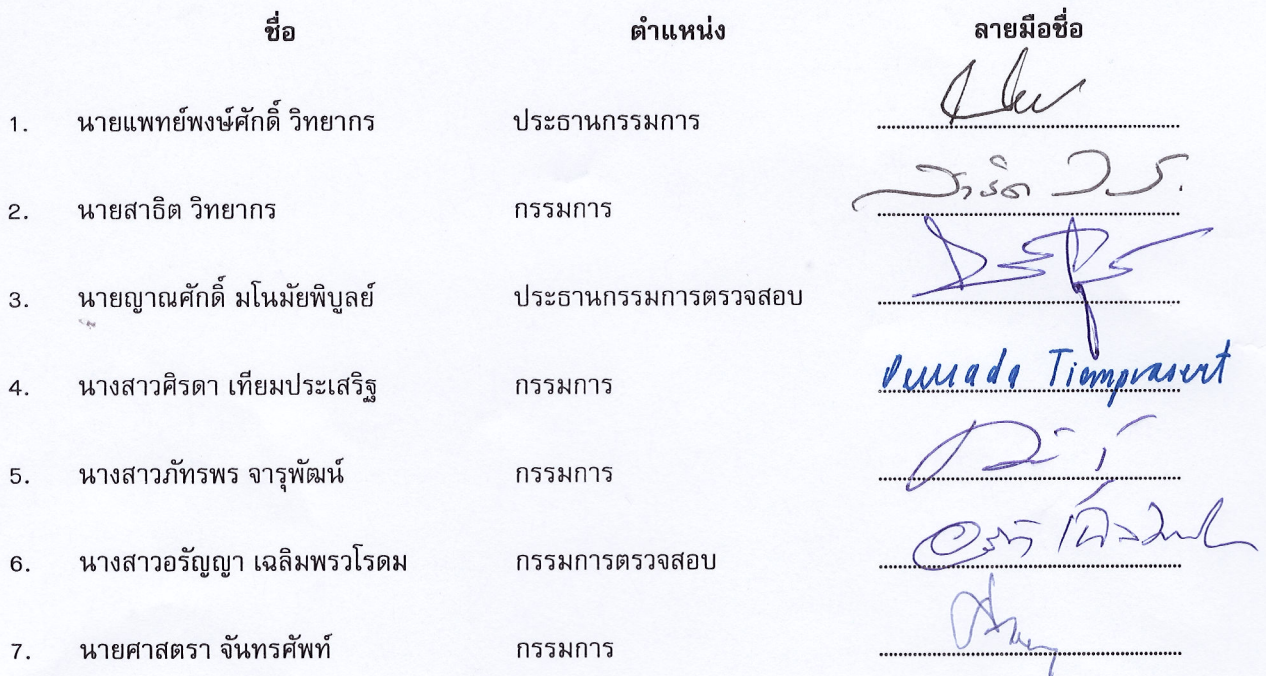 ชื่อ ตำแหน่ง ลายมือชื่อ
1. นายแพทย์พงษ์ศักดิ์ วิทยากร ประธานกรรมการ
2. นายสาธิต วิทยากร กรรมการ สาธิต ว.ร.
3. นายญาณศักดิ์ มโนมัยพิบูลย์ ประธานกรรมการตรวจสอบ
4. นางสาวศิรดา เทียมประเสริฐ กรรมการ Tiemprasert
5. นางสาวภัทรพร จารุพัฒน์ กรรมการ
6. นางสาวอรัญญา เฉลิมพรวโรดม กรรมการตรวจสอบ
7. นายศาสตรา จันทรศัพท์ กรรมการ